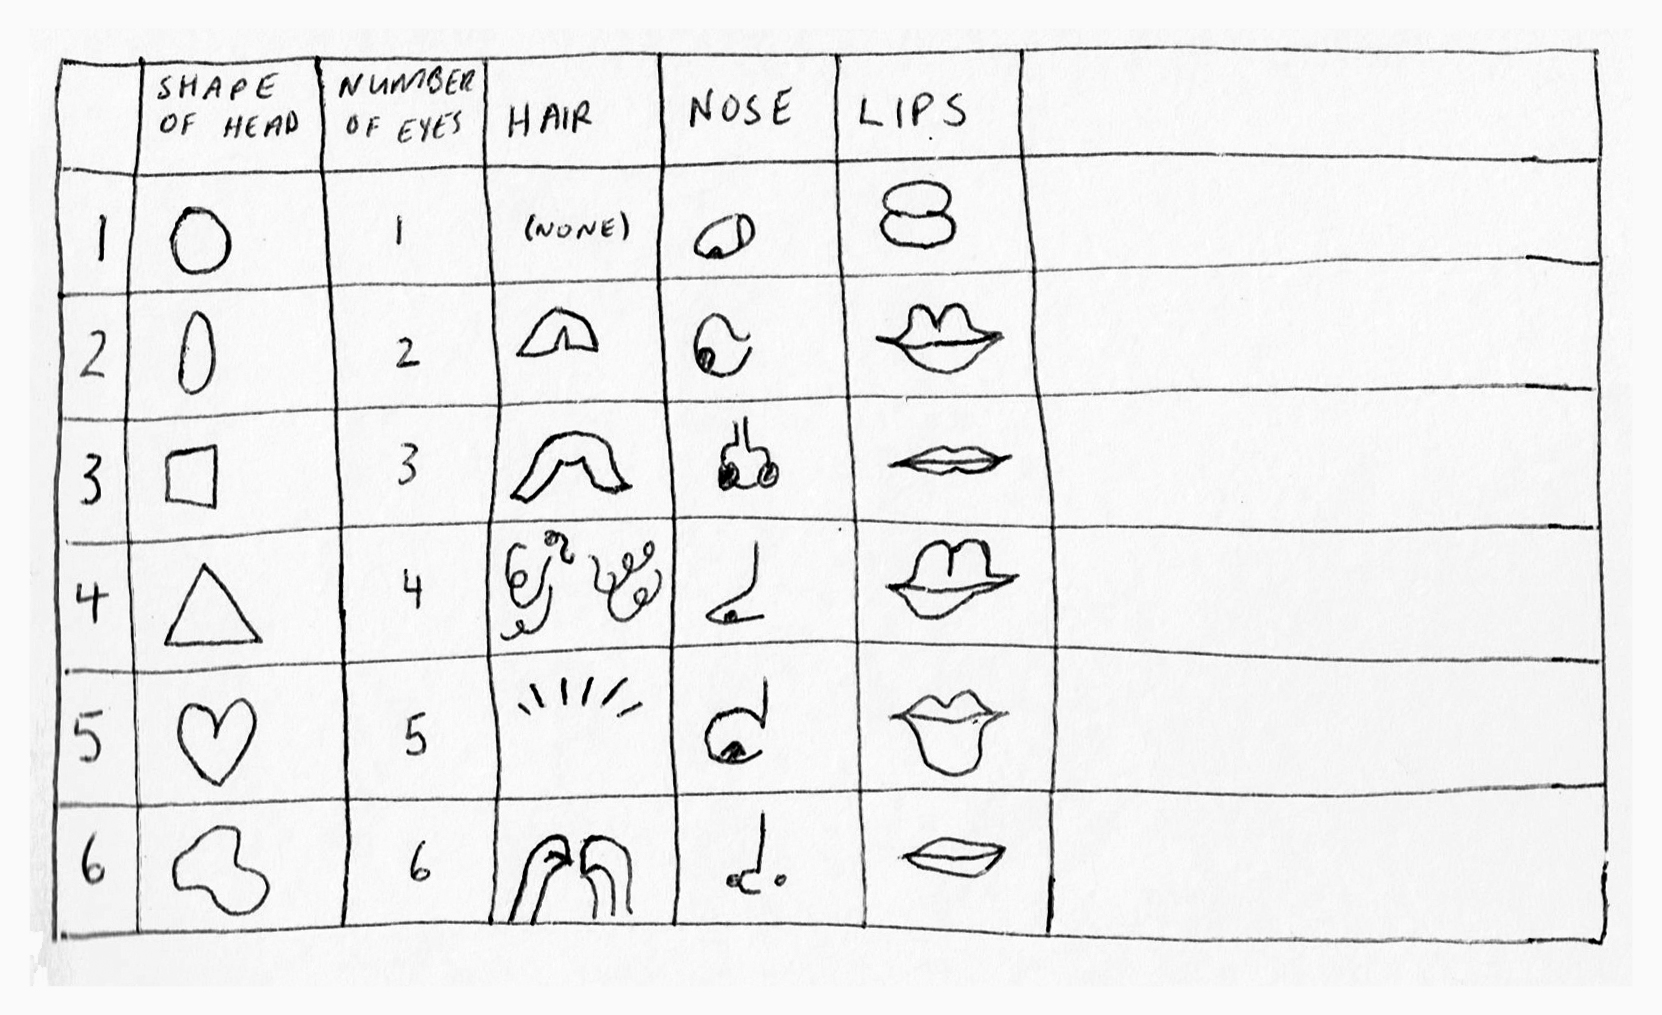 SHAPE OF HEAD
NUMBER OF EYES
HAIR
NOSE
LIPS
1
1
(NONE)
2
2
3
3
4
4
5
5
6
6